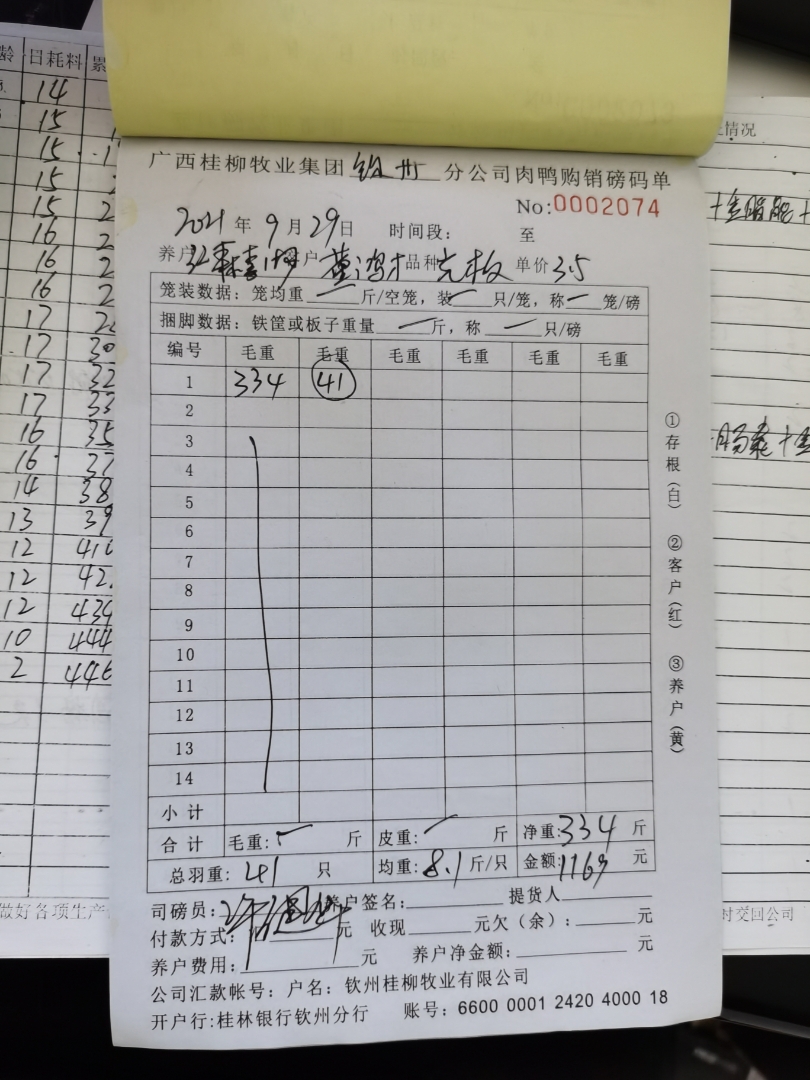 龄 日耗料 累
14
15
15
15
15 2
16 2
16 2
16 2
17 2
17 30
17 32
17 33
16 35
16 37
14 38
13 39
12 410
12 42
12 434
10 444
2 446
做好各项生产
广西桂柳牧业集团 钦州 分公司肉鸭购销磅码单
No:0002074
2021年9月29日 时间段: 至
养户 户 黄鸿才 品种 克板 单价3.5
笼装数据:笼均重 一 斤/空笼,装 一 只/笼,称 一 笼/磅
捆脚数据:铁筐或板子重量 一 斤,称 一 只/磅
编号 毛重 毛重 毛重 毛重 毛重 毛重
1 334 41
2
3
4
5
6
7
8
9
10
11
12
13
14
小计
合计 毛重: 斤 皮重: 斤 净重:334 斤
总羽重:41 只 均重:8.1 斤/只 金额:1169 元
司磅员: 养户签名: 提货人
付款方式: 元 收现 元欠(余): 元
养户费用: 元 养户净金额: 元
公司汇款帐号:户名:钦州桂柳牧业有限公司
开户行:桂林银行钦州分行 账号:6600 0001 2420 4000 18
①存根(白) ②客户(红) ③养户(黄)
情况
时交回公司